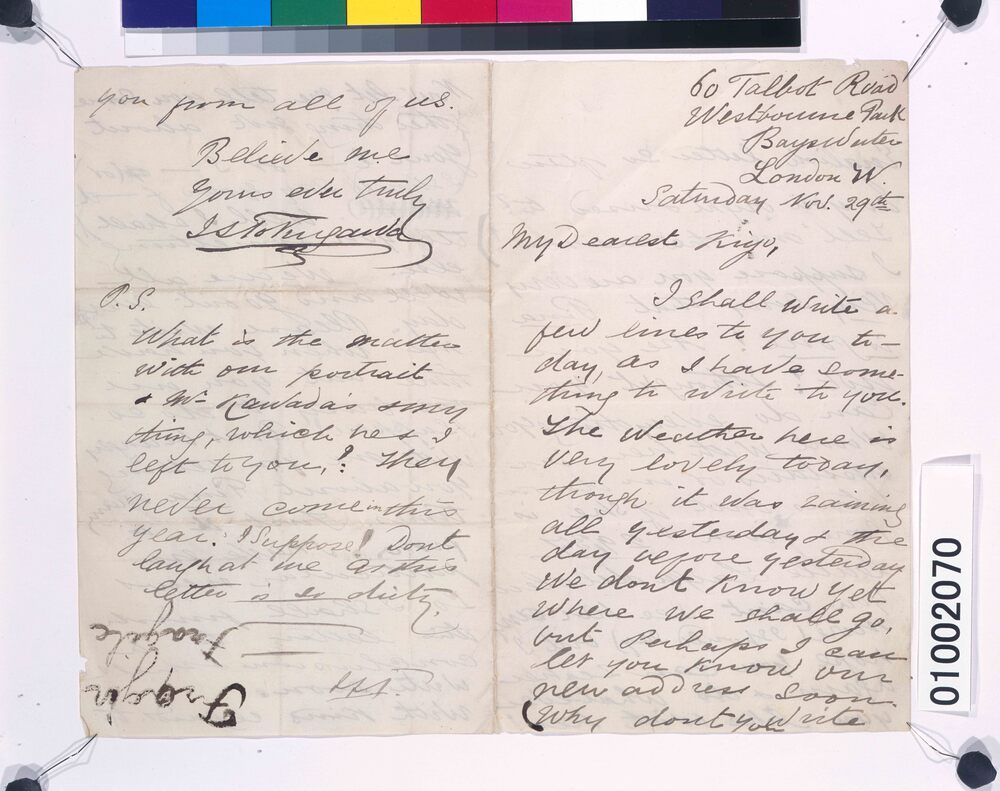 60 Talbot Road
Westbourne Park
Bayswater
London W.
Saturday Nov. 29th
My Dearest Kiyo,
I shall write a
few lines to you to-
day, as I have some-
thing to write to you.
The weather here is
very lovely today,
though it was raining
all yesterday & the
day before yesterday
We dont know yet
where we shall go,
but Perhaps I can
let you know our
new address soon.
(Why dont you write
you from all of us.
Believe me
yours ever truly
I S Tokugawa
P.S.
What is the matter
with our portrait
& Mr Kawada's
thing, which I
left to you,? They
never come in this
year. I suppose! Dont
laugh at me as this
letter is so dirty.
Fragile
01002070